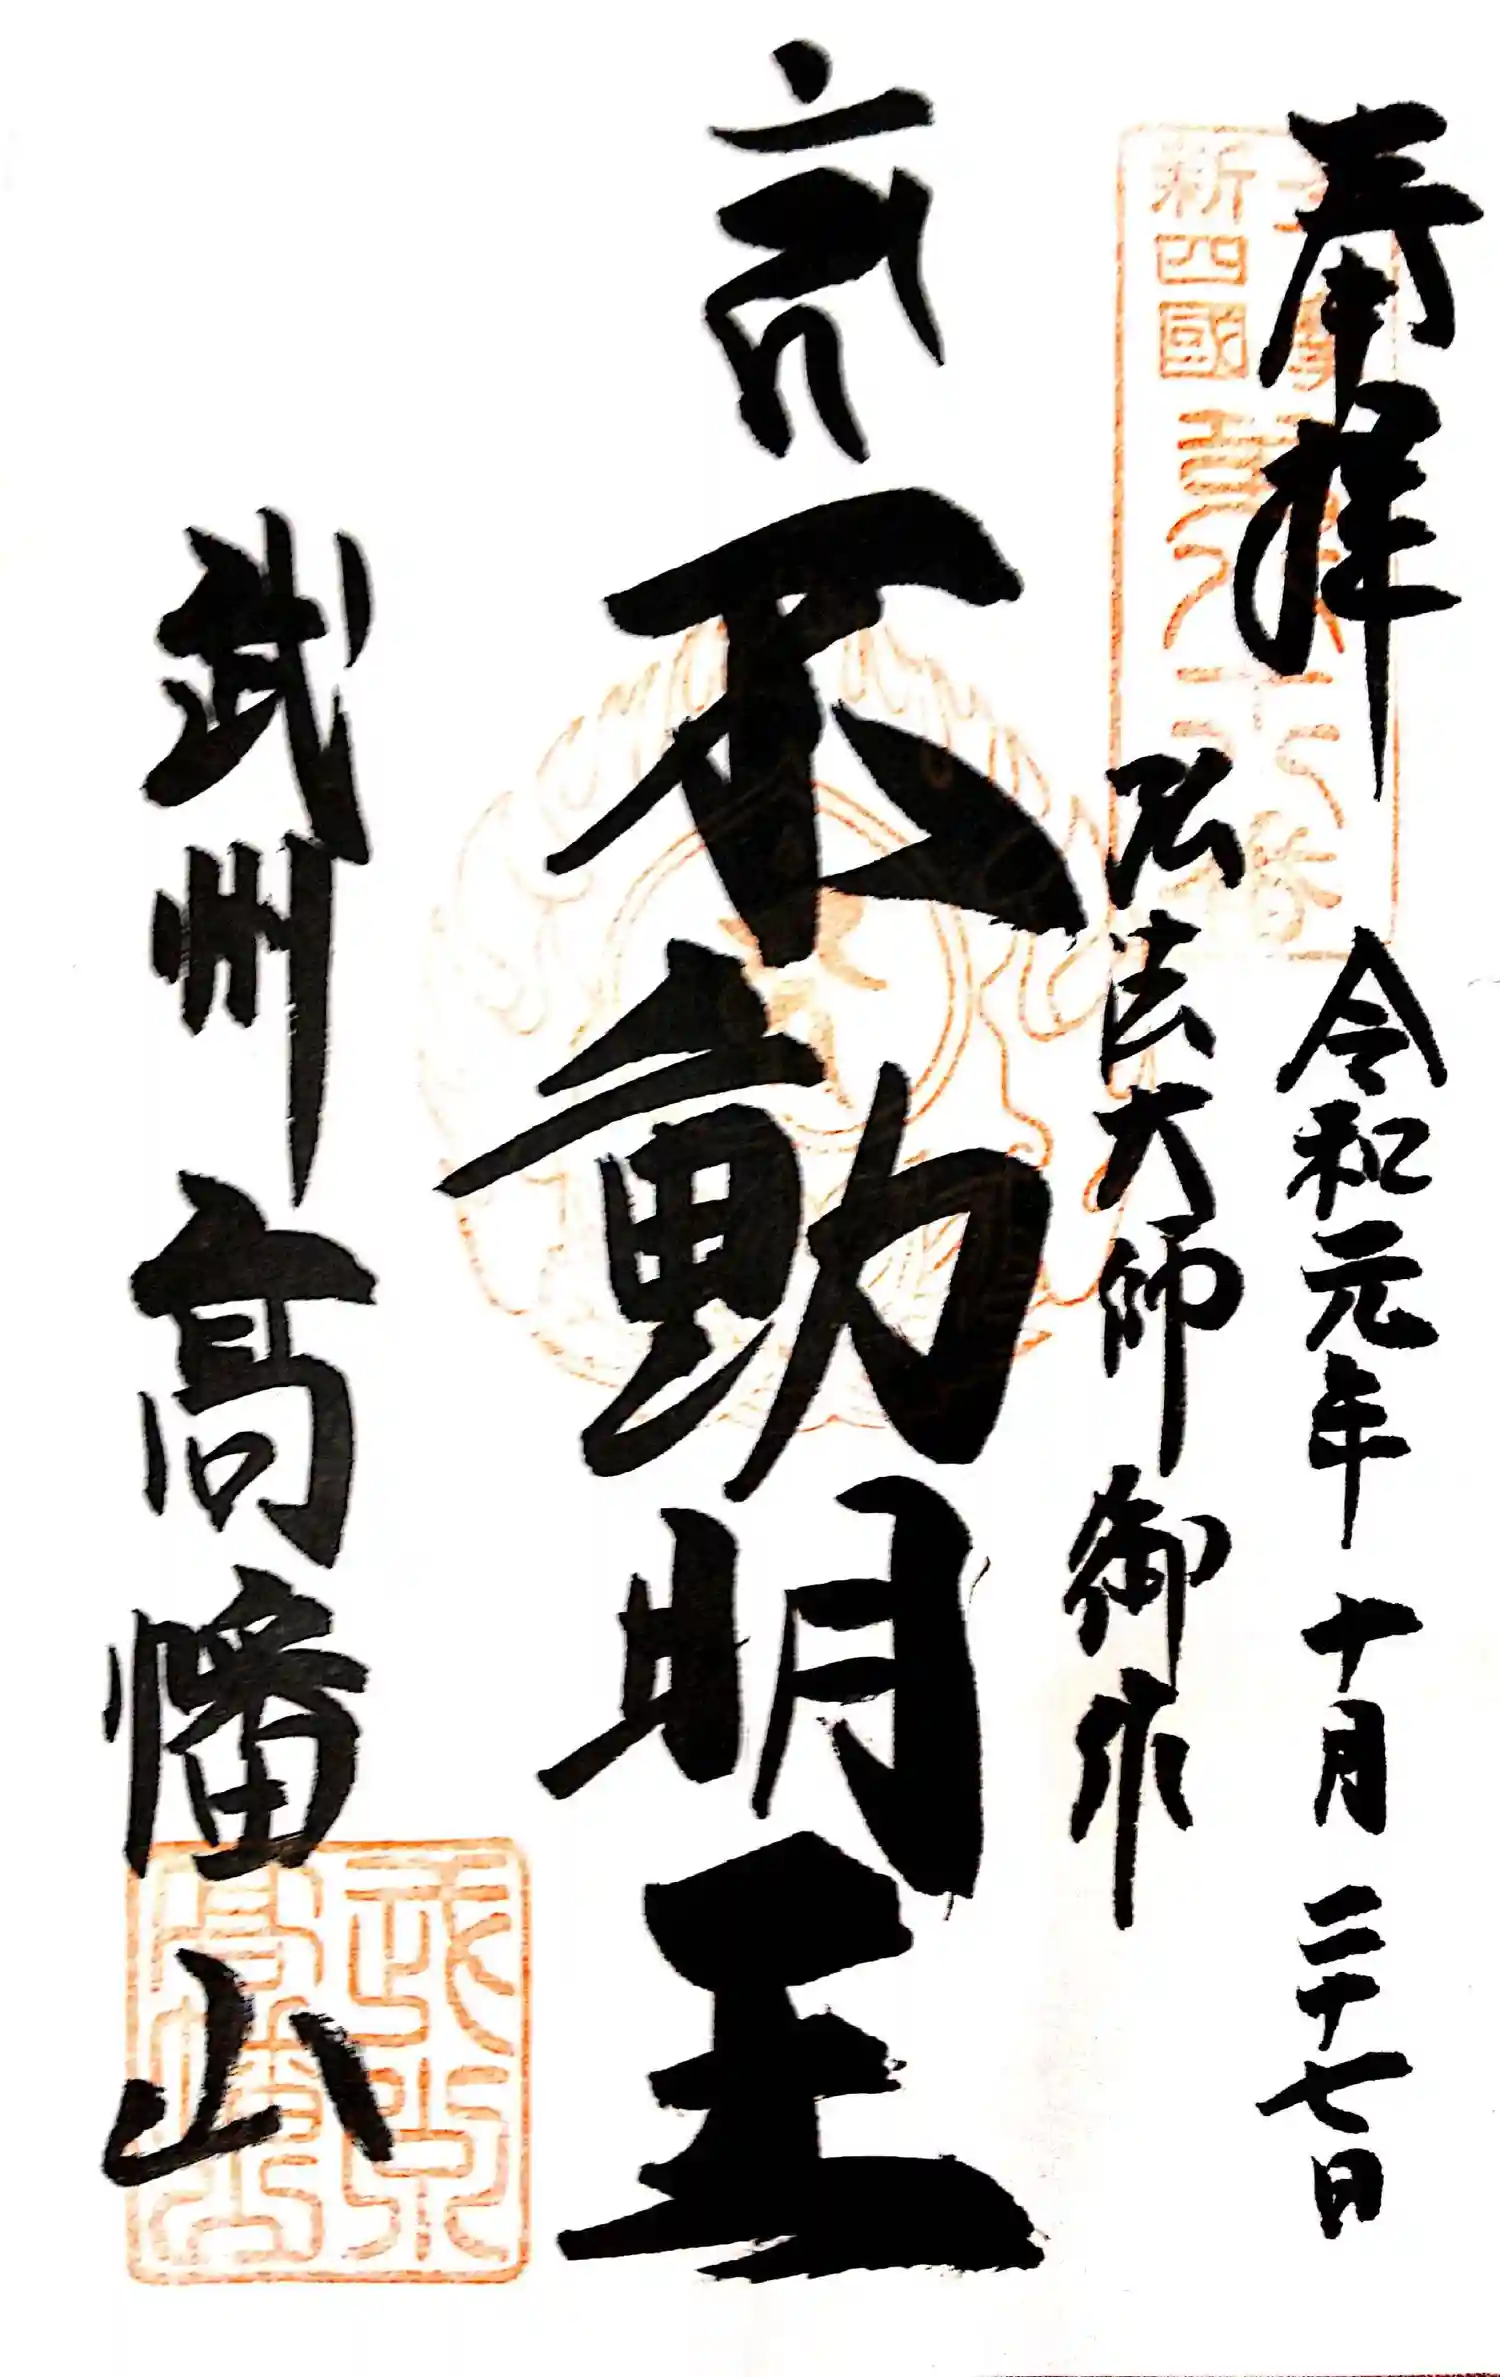 奉拝
令和元年 十月 二十七日
弘法大師御作
不動明王
武州高幡山
新四國